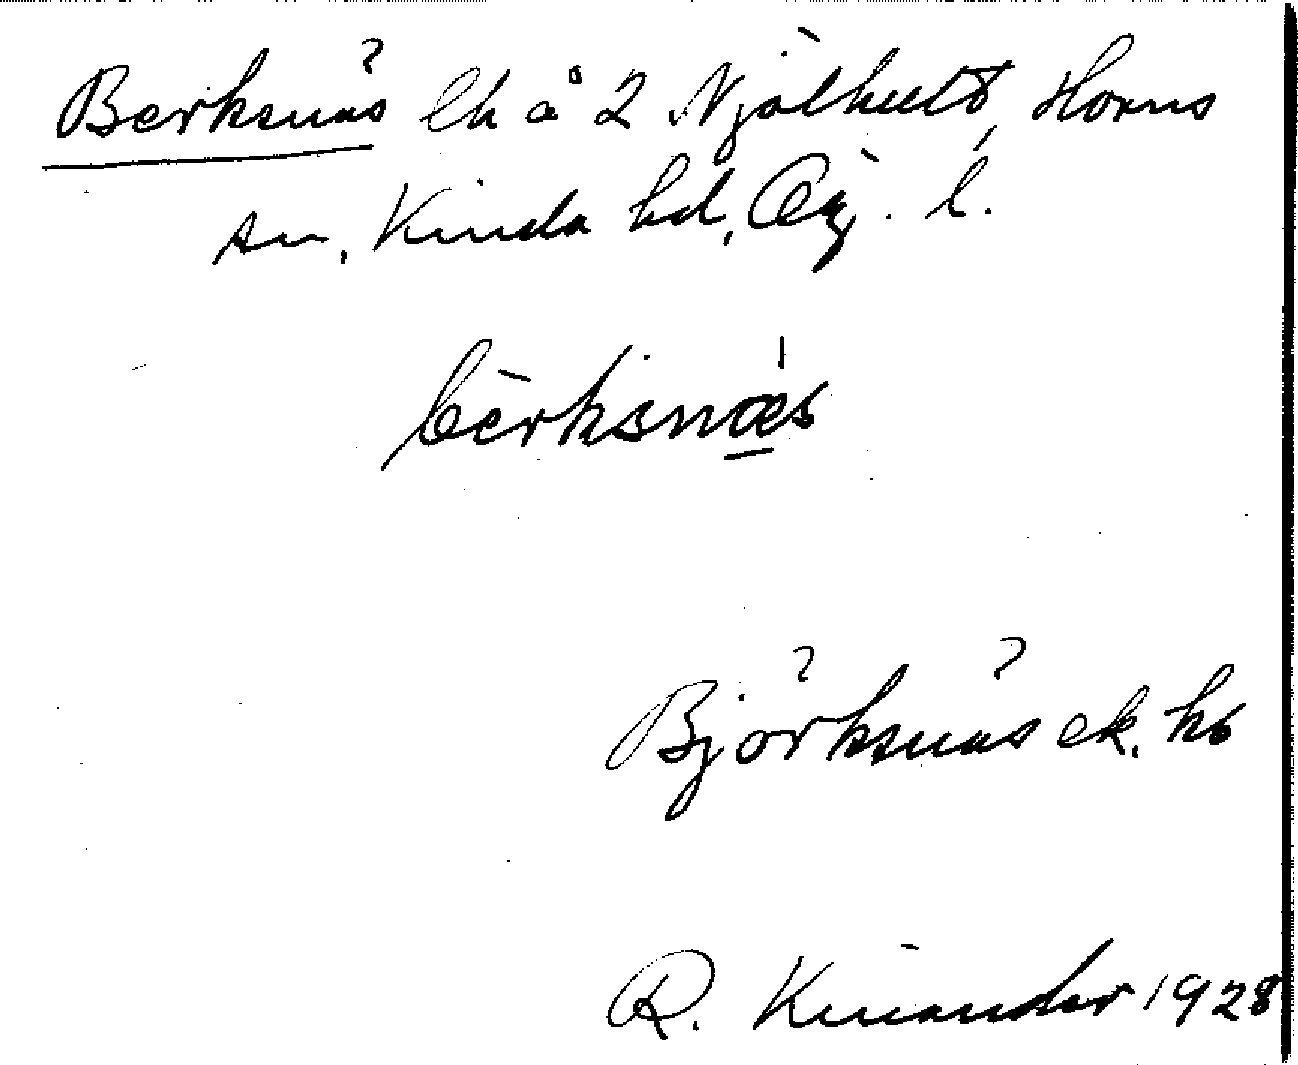 Berksnäs lh å 2 Njälhult, Horns
sn, Kinda hd, Ög. l.
bèrksnæ̲s
Björksnäs ek. kb
R. Kinander 1928